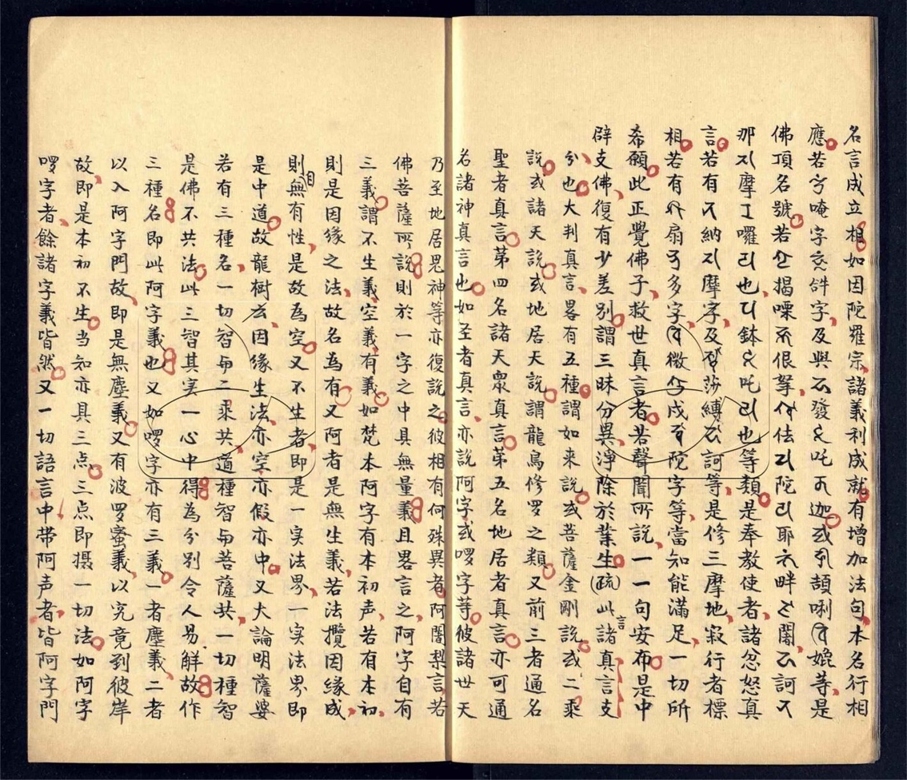 名言成立相如因陀羅宗諸義利成就有增加法句本名行相
應若字唵字字及與發吒或頡唎媲等是
佛頂名號若揭㗚佷拏佉陀耶畔闍訶
那摩囉也鉢吒也等類是奉教使者諸忿怒真
言若有納摩字及莎縛訶等是修三摩地寂行者標
相若有扇多字微戍陀字等當知能滿足一切所
希願此正覺佛子救世真言者若聲聞所說一一句安布是中
辟支佛復有少差別謂三昧分異淨除於業生(疏)此諸真言支
分也大判真言畧有五種謂如来說或菩薩金剛說或二乘
說或諸天說或地居天說謂龍鳥修罗之類又前三者通名
聖者真言第四名諸天衆真言第五名地居者真言亦可通
名諸神真言也如圣者真言亦說阿字或啰字等彼諸世天
乃至地居鬼神等亦復說之彼相有何殊異者阿闍梨言若
佛菩薩所說則於一字之中具無量義且畧言之阿字自有
三義謂不生義空義有義如梵本阿字有本初声若有本初
則是因缘之法故名為有又阿者是無生義若法攬因缘成
則無自有性是故為空又不生者即是一实法界一实法界即
是中道故龍樹云因缘生法亦空亦假亦中又大論明薩婆
若有三種名一切智与二乘共道種智与菩薩共一切種智
是佛不共法此三智其实一心中得為分别令人易解故作
三種名即此阿字義也又如啰字亦有三義一者塵義二者
以入阿字門故即是無塵義又有波罗蜜義以究竟到彼岸
故即是本初不生当知亦具三点三点即摄一切法如阿字
啰字者餘諸字義皆然又一切語言中带阿声者皆阿字門